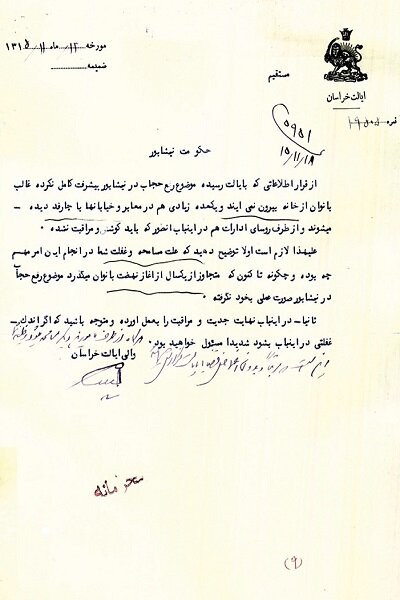 مورخه ۱۲ ماه ۱۱ ۱۳۱۵
ضمیمه
مستقیم
ایالت خراسان
نمره
۵۹۵۱
۱۵/۱۱/۱۸
حکومت نیشابور
از قرار اطلاعاتی که بایالت رسیده موضوع رفع حجاب در نیشابور پیشرفت کامل نکرده غالب
بانوان از خانه بیرون نمی ایند و یکعده زیادی هم در معابر و خیابانها با چارقد دیده –
میشوند و از طرف روسای ادارات هم در اینباب انطور که باید کوشش و مراقبت نشده .
علیهذا لازم است اولا توضیح دهید که علت مسامحه و غفلت شما در انجام این امر مهم
چه بوده و چگونه تا کنون که متجاوز از یکسال از اغاز نهضت بانوان میگذرد موضوع رفع حجاب
در نیشابور صورت عملی بخود نگرفته
ثانیا – در اینباب نهایت جدیت و مراقبت را بعمل اورده و متوجه باشید که اگر اندک –
غفلتی در اینباب بشود شدیدا مسئول خواهید بود.
والی ایالت خراسان
محرمانه
(۹)